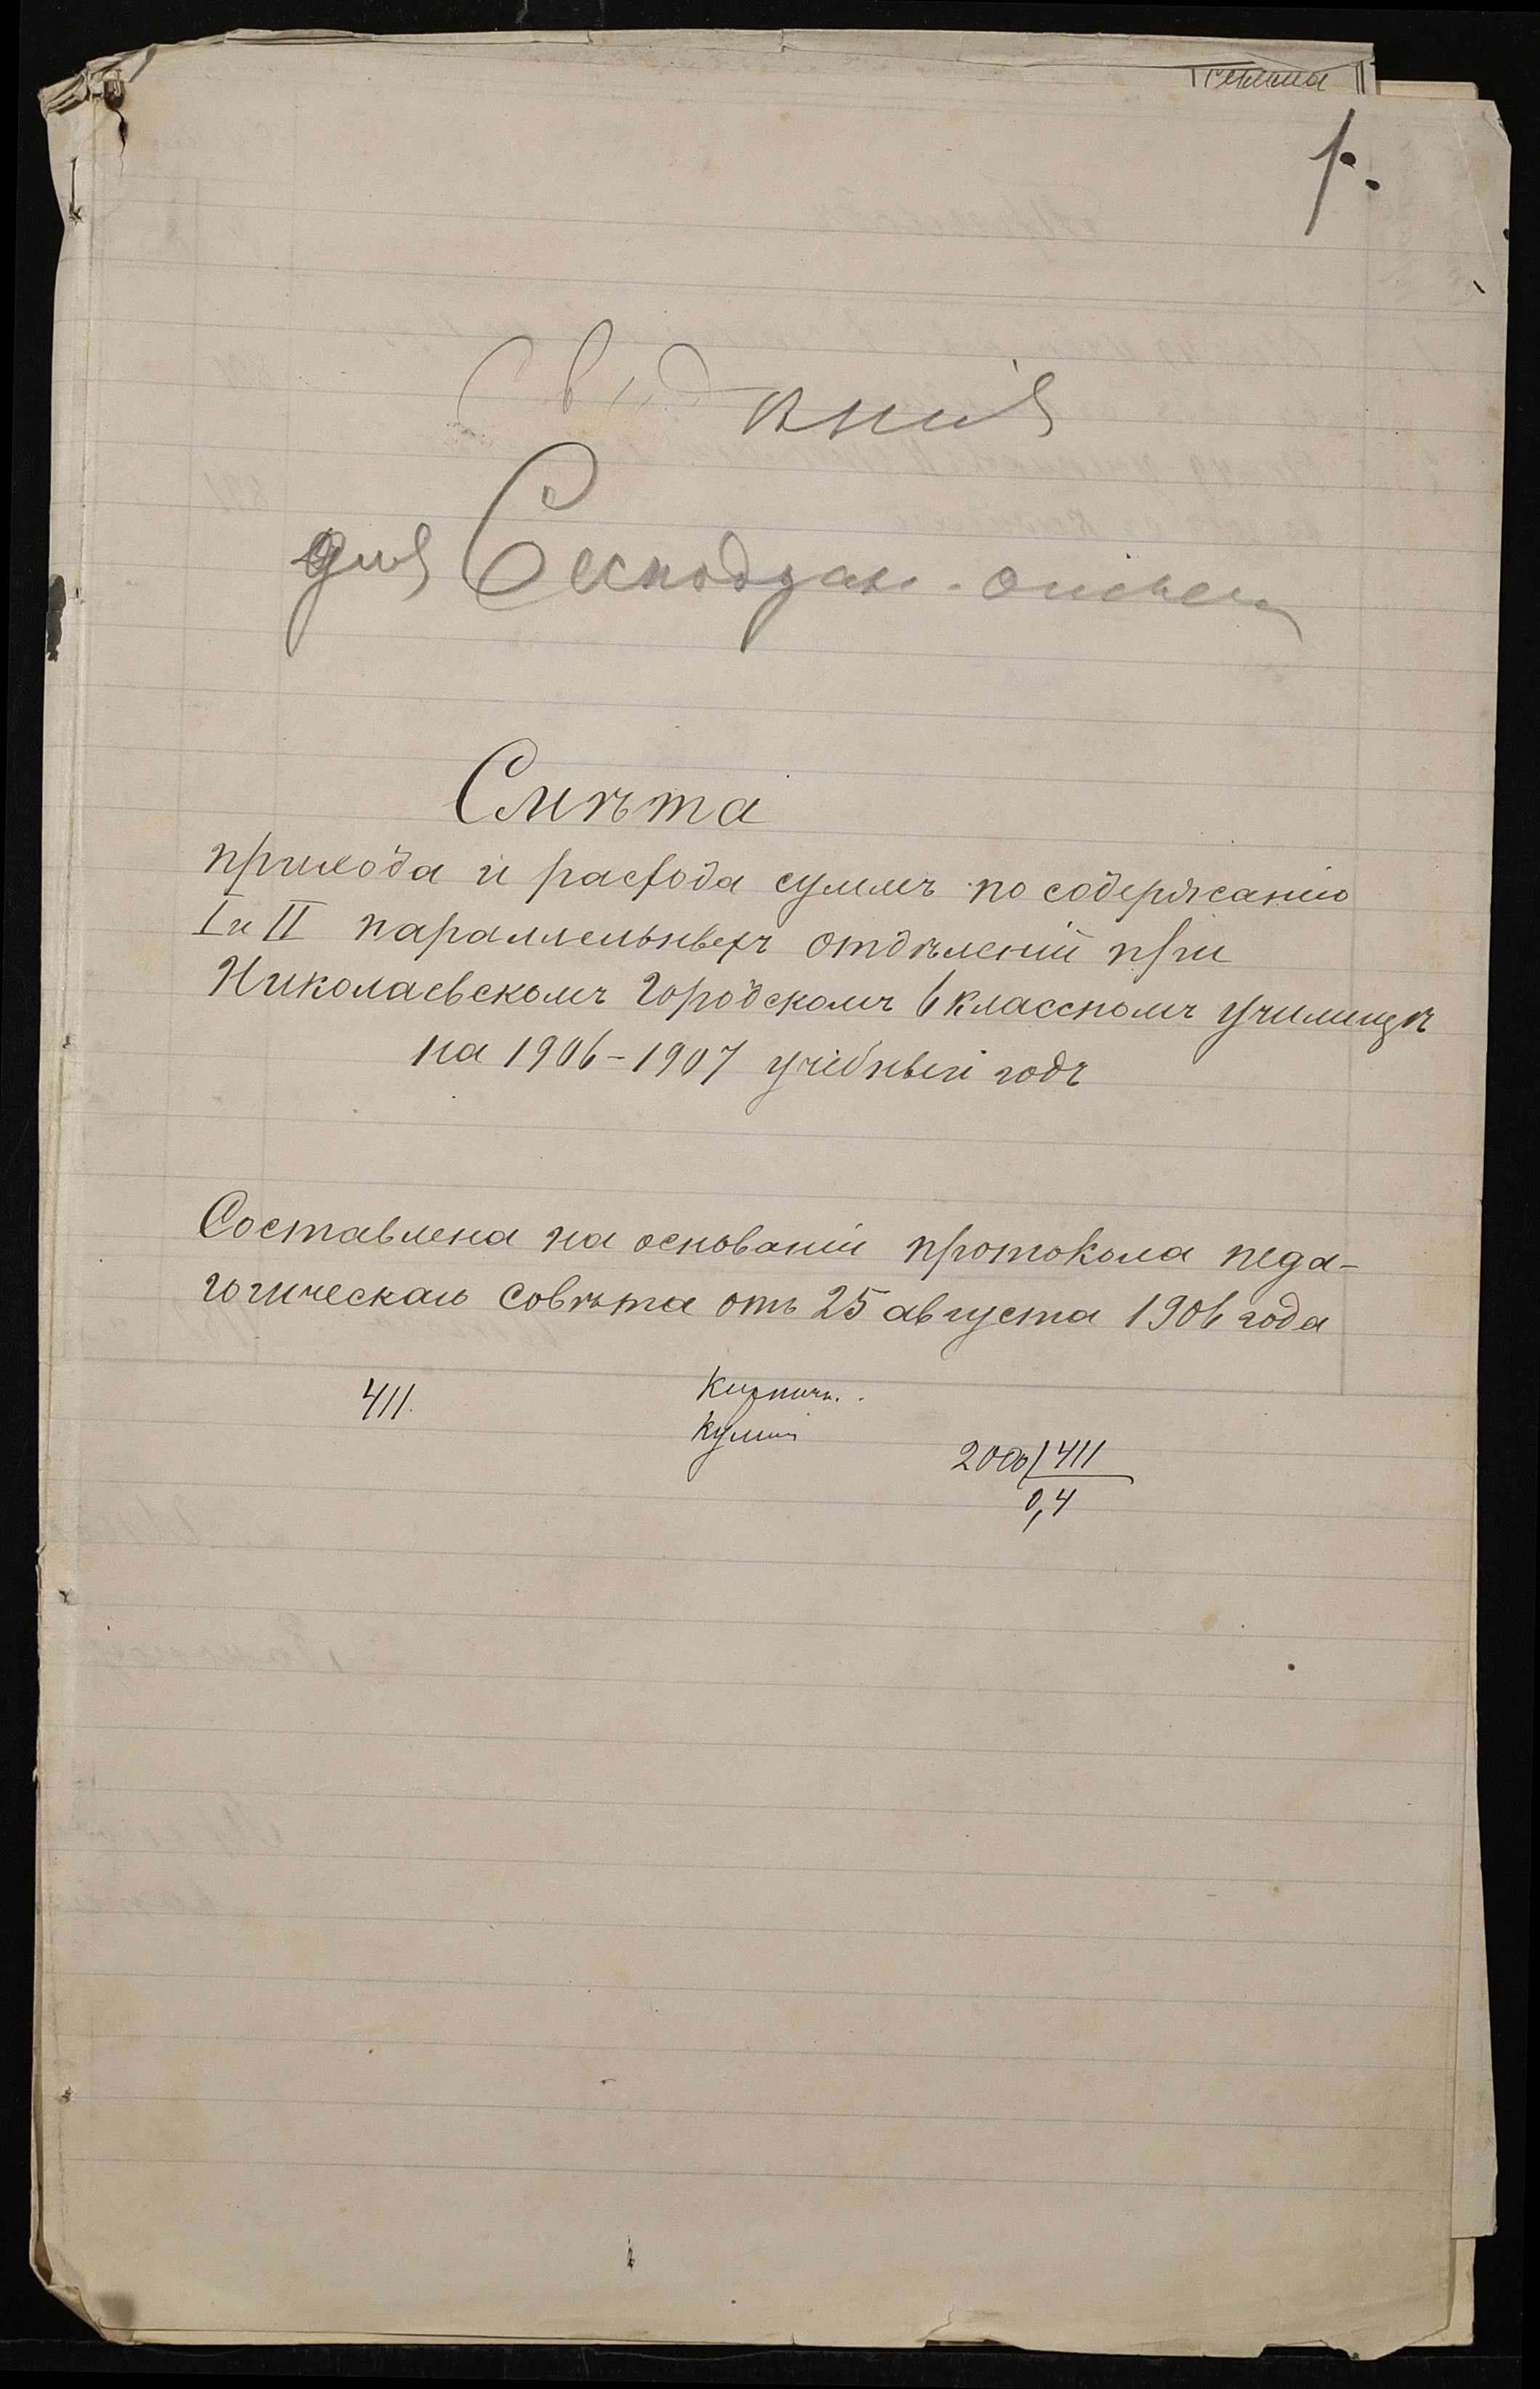 1.
Свѣдѣнія
для
Смѣта
прихода и расхода суммъ по содержанію
I и II параллельныхъ отдѣленій при
Николаевскомъ Городскомъ 6 классномъ училищѣ
на 1906-1907 учебный годъ
Составлена на основаніи протокола педа-
гогическаго совѣта отъ 25 августа 1906 года
411.
411
0,4